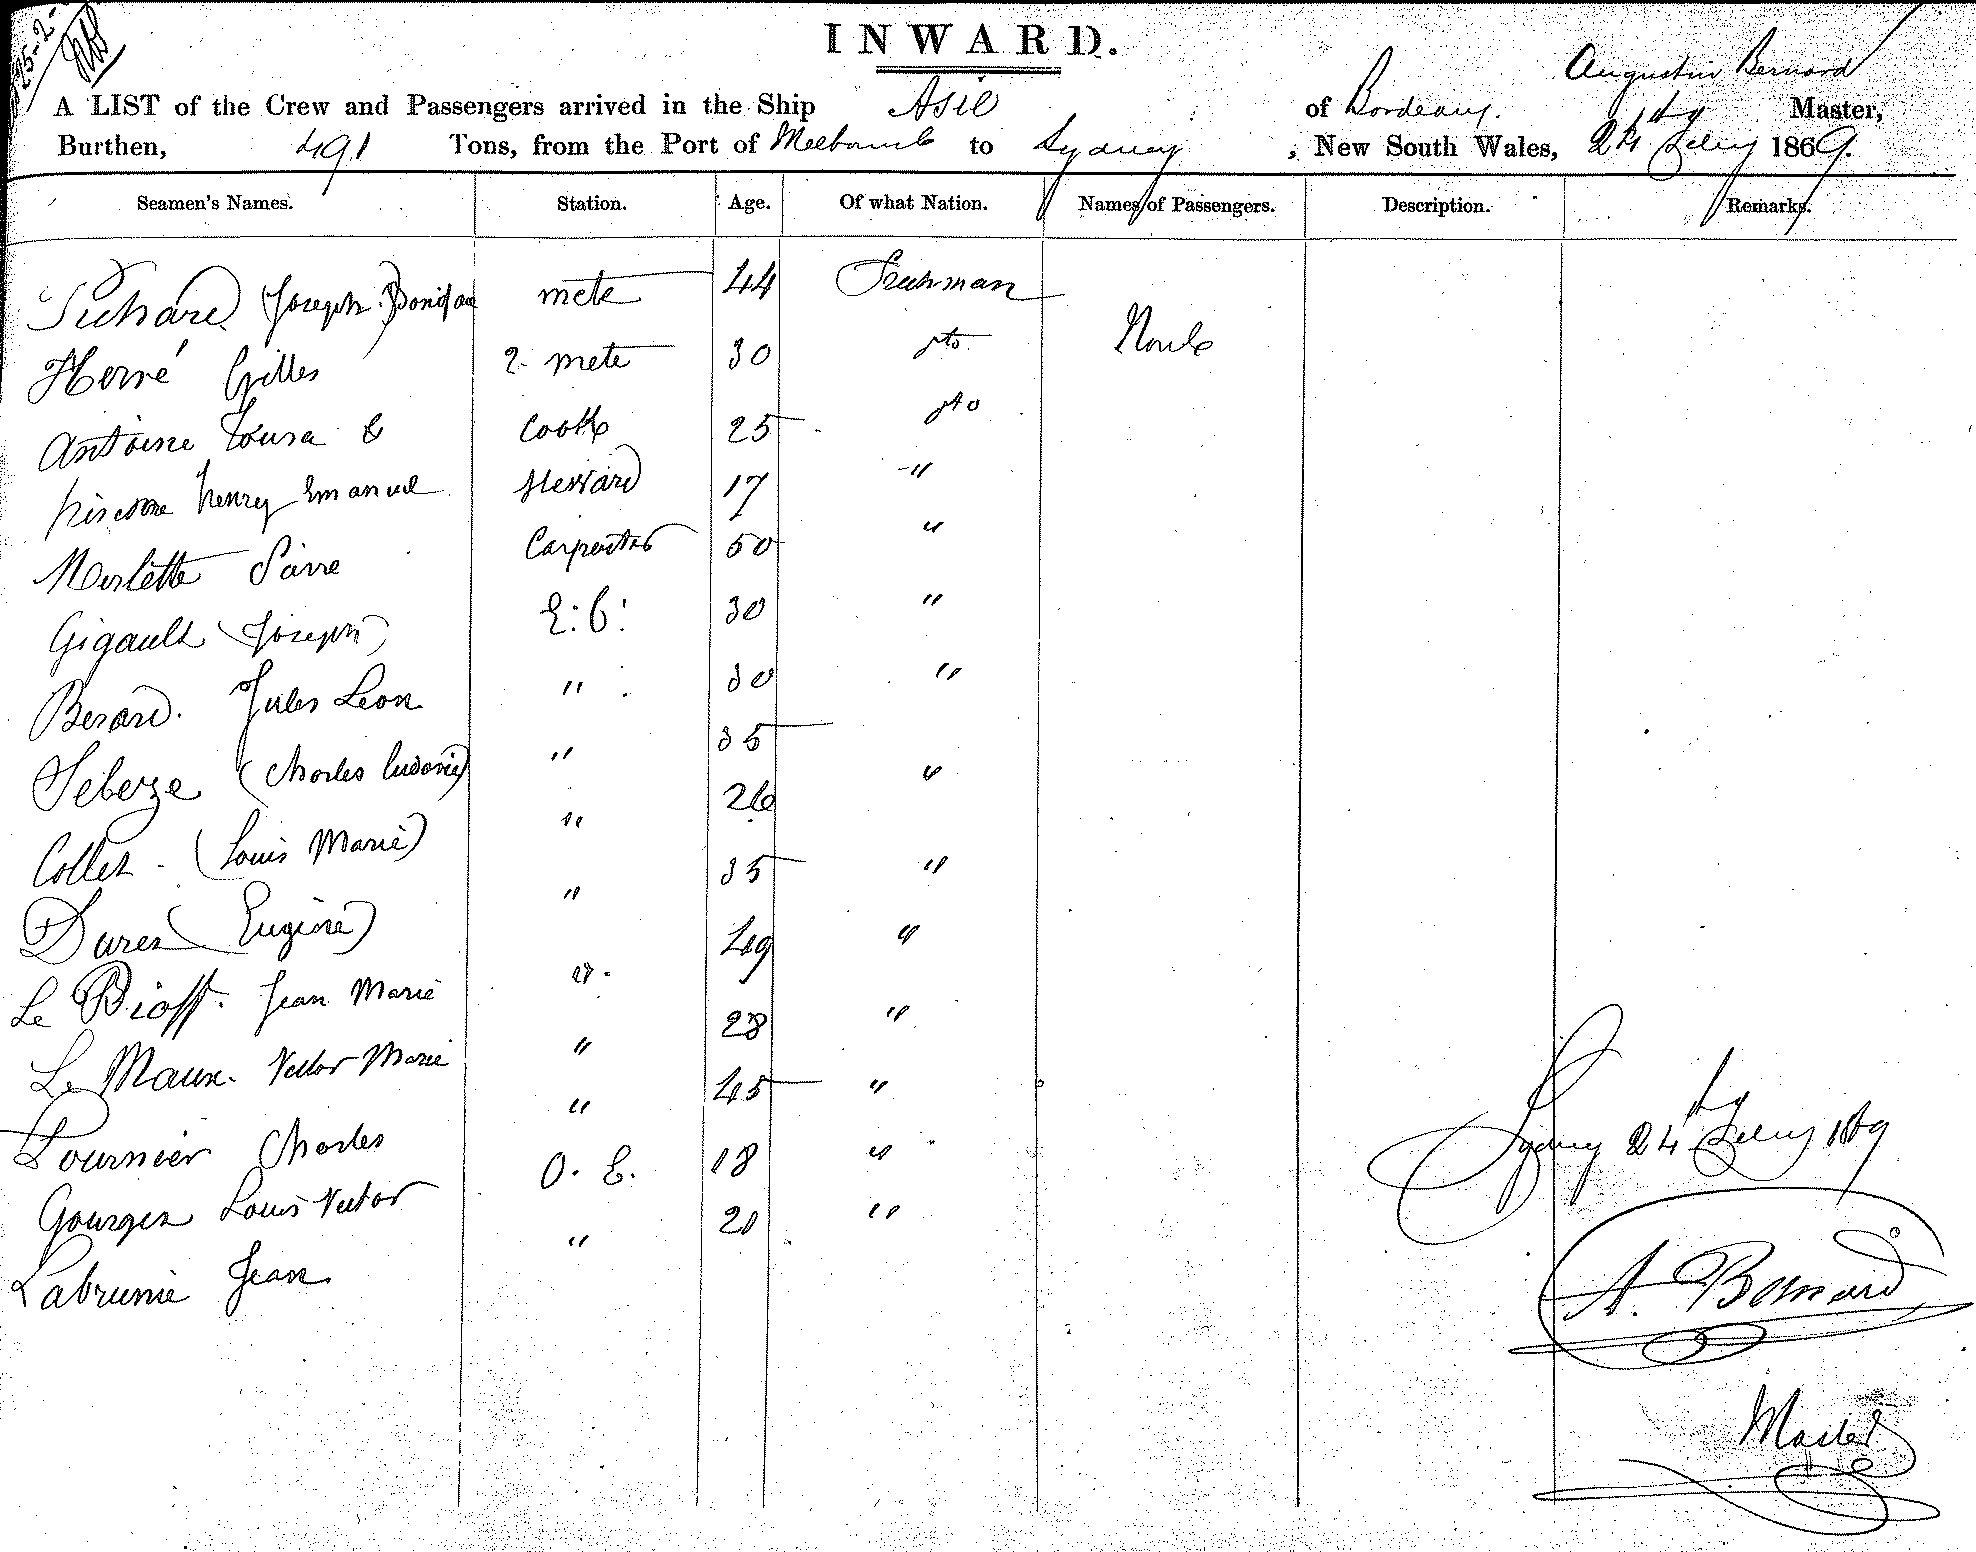 INWARD.
Augustin Bernard
A LIST of the Crew and Passengers arrived in the Ship Asie of Bordeaux. Master,
Burthen, 491 Tons, from the Port of Melbourne to Sydney, New South Wales, 24th Feby 1869.
Seamen's Names. Station. Age. Of what Nation. Names of Passengers. Description. Remarks.
Suhard (Joseph Bonifac mete 44 Frenhman
Hervé Gilles 2. mete 30 dto None
Antoine Louis C Cook 25 dto
henry Emanuel Steward 17 "
Merlette Pierre Carpenter 50 "
Gigault (Joseph) E: B: 30 "
Berard. Jules Leon " 30 "
(Charles Ludovic) " 35
Collet - (Louis Marie) " 26 "
Dures (Eugène) " 35 "
Le Bioff. Jean Marie " 49 "
Le Maux. Victor Marie " 28 "
Fournier Charles " 45 "
Georges Louis Victor O. E. 18 "
Labrunie Jean " 20 "
Sydney 24th Feby 1869
A. Bernard
Master